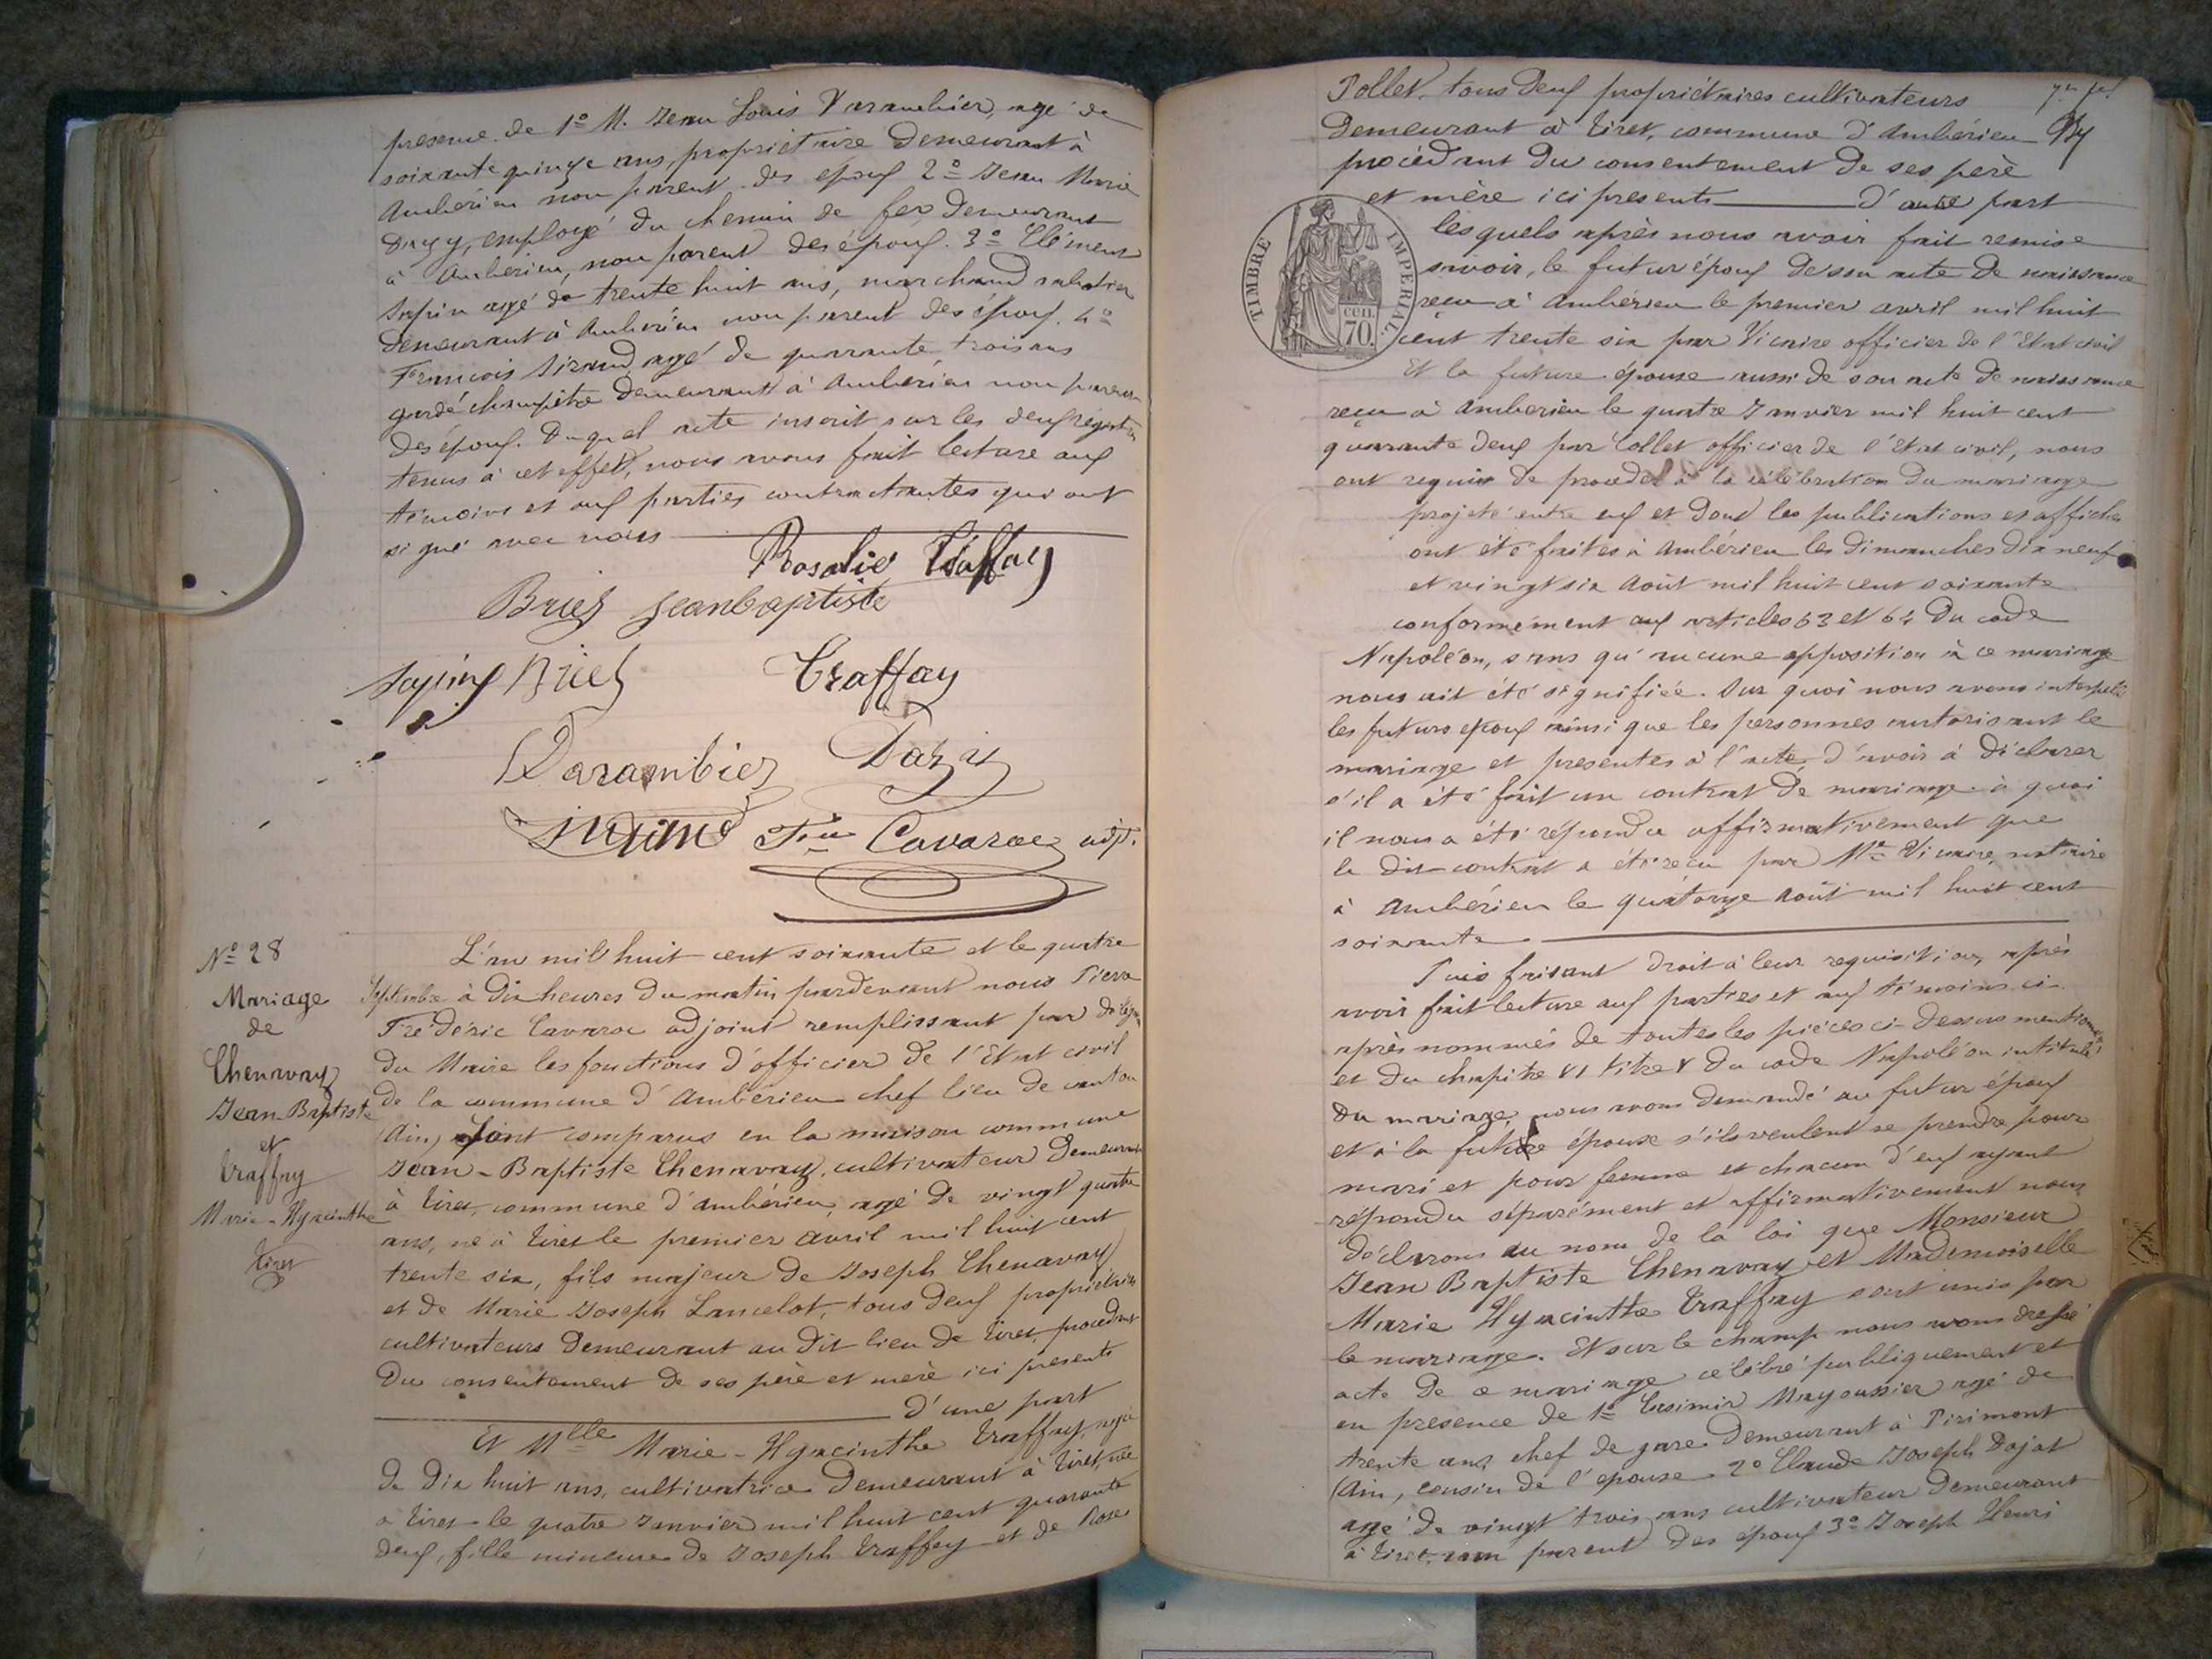 présence de 1º M. Jean Louis Varambier, agé de
soixante quinze ans, propriétaire Demeurant à
Ambérieu non parent des époux 2º Jean Marie
Dazy, employé du chemin de fer Demeurant
à Ambérieu, non parent des époux. 3º Clément
Sapin agé de trente huit ans, marchand sabotier
Demeurant à Ambérieu non parent des époux. 4º
François Siraud agé de quarante trois ans
garde champêtre Demeurant à Ambérieu non parent
des époux. Duquel acte inscrit sur les deux régistres
tenus à cet effet, nous avons fait lecture aux
témoins et aux parties contractantes qui ont
signé avec nous
Rosalie Traffay
Briez jeanbaptiste
Briez Traffay
Varambier Dazy
Cavaroc adj.
Nº 28
Mariage
de
Chenavay
Jean-Baptiste
et
Traffay
Marie-Hyacinthe
Tiret
L'an mil huit cent soixante et le quatre
Septembre à Dix heures du matin pardevant nous Pierre
Frédéric Cavaroc adjoint remplissant par délégon
du Maire les fonctions d'officier de l'Etat civil
de la commune d'Ambérieu chef lieu de canton
(Ain) sont comparus en la maison commune
Jean-Baptiste Chenavay, cultivateur Demeurant
à Tiret, commune d'ambérieu, agé de vingt quatre
ans, né à Tiret le premier avril mil huit cent
trente six, fils majeur de Joseph Chenavay
et de Marie Joseph Lancelot, tous deux propriétaires
cultivateurs Demeurant au dit lieu de Tiret, procédant
Du consentement de ses père et mère ici présents
d'une part
Et Mlle Marie-Hyacinthe Traffay, agée
de Dix huit ans, cultivatrice Demeurant à Tiret, née
à Tiret le quatre Janvier mil huit cent quarante
deux, fille mineure de Joseph Traffay et de Rose
Pollet, tous Deux propriétaires cultivateurs
Demeurant à Tiret, commune d'Ambérieu
procédant Du consentement de ses père
et mère ici présents d'autre part
TIMBRE IMPERIAL
CEN. 70.
lesquels après nous avoir fait remise
savoir, le futur époux de son acte de naissance
reçu à Ambérieu le premier avril mil huit
cent trente six par Vicaire officier de l'Etat civil
Et la future épouse aussi de son acte de naissance
reçu à Amberieu le quatre Janvier mil huit cent
quarante deux par Collet officier de l'Etat civil, nous
ont requis de procéder à la célébration du mariage
projeté entre eux et dont les publications et affiches
ont été faites à Ambérieu les Dimanches dix neuf
et vingt six Août mil huit cent soixante
conformément aux articles 63 et 64 du code
Napoléon, sans qu'aucune opposition à ce mariage
nous ait été signifiée. Sur quoi nous avons interpellé
les futurs epoux ainsi que les personnes autorisant le
mariage et presentes à l'acte, d'avoir à déclarer
s'il a été fait un contrat de mariage à quoi
il nous a été répondu affirmativement que
le dit contrat a été reçu par Me Vicaire, notaire
à Ambérieu le quatorze Août mil huit cent
soixante
Puis faisant droit à leur requisition, après
avoir fait lecture aux parties et aux témoins ci-
après nommés de toutes les pièces ci-dessus mentionnées
et du chapitre VI titre V du code Napoléon intitulé
du mariage, nous avons demandé au futur époux
et à la future épouse s'ils veulent se prendre pour
mari et pour femme et chacun d'eux ayant
répondu séparément et affirmativement nous
déclarons au nom de la loi que Monsieur
Jean Baptiste Chenavay et Mademoiselle
Marie Hyacinthe Traffay sont unis par
le mariage. Et sur le champ nous avons dressé
acte de ce mariage célébré publiquement et
en présence de 1º Casimir Mayoussier agé de
trente ans, chef de gare Demeurant à Pirimont
(Ain, cousin de l'épouse 2º Claude Joseph Dajat
agé de vingt trois ans cultivateur Demeurant
à Tiret, non parent des époux 3º Joseph Henri